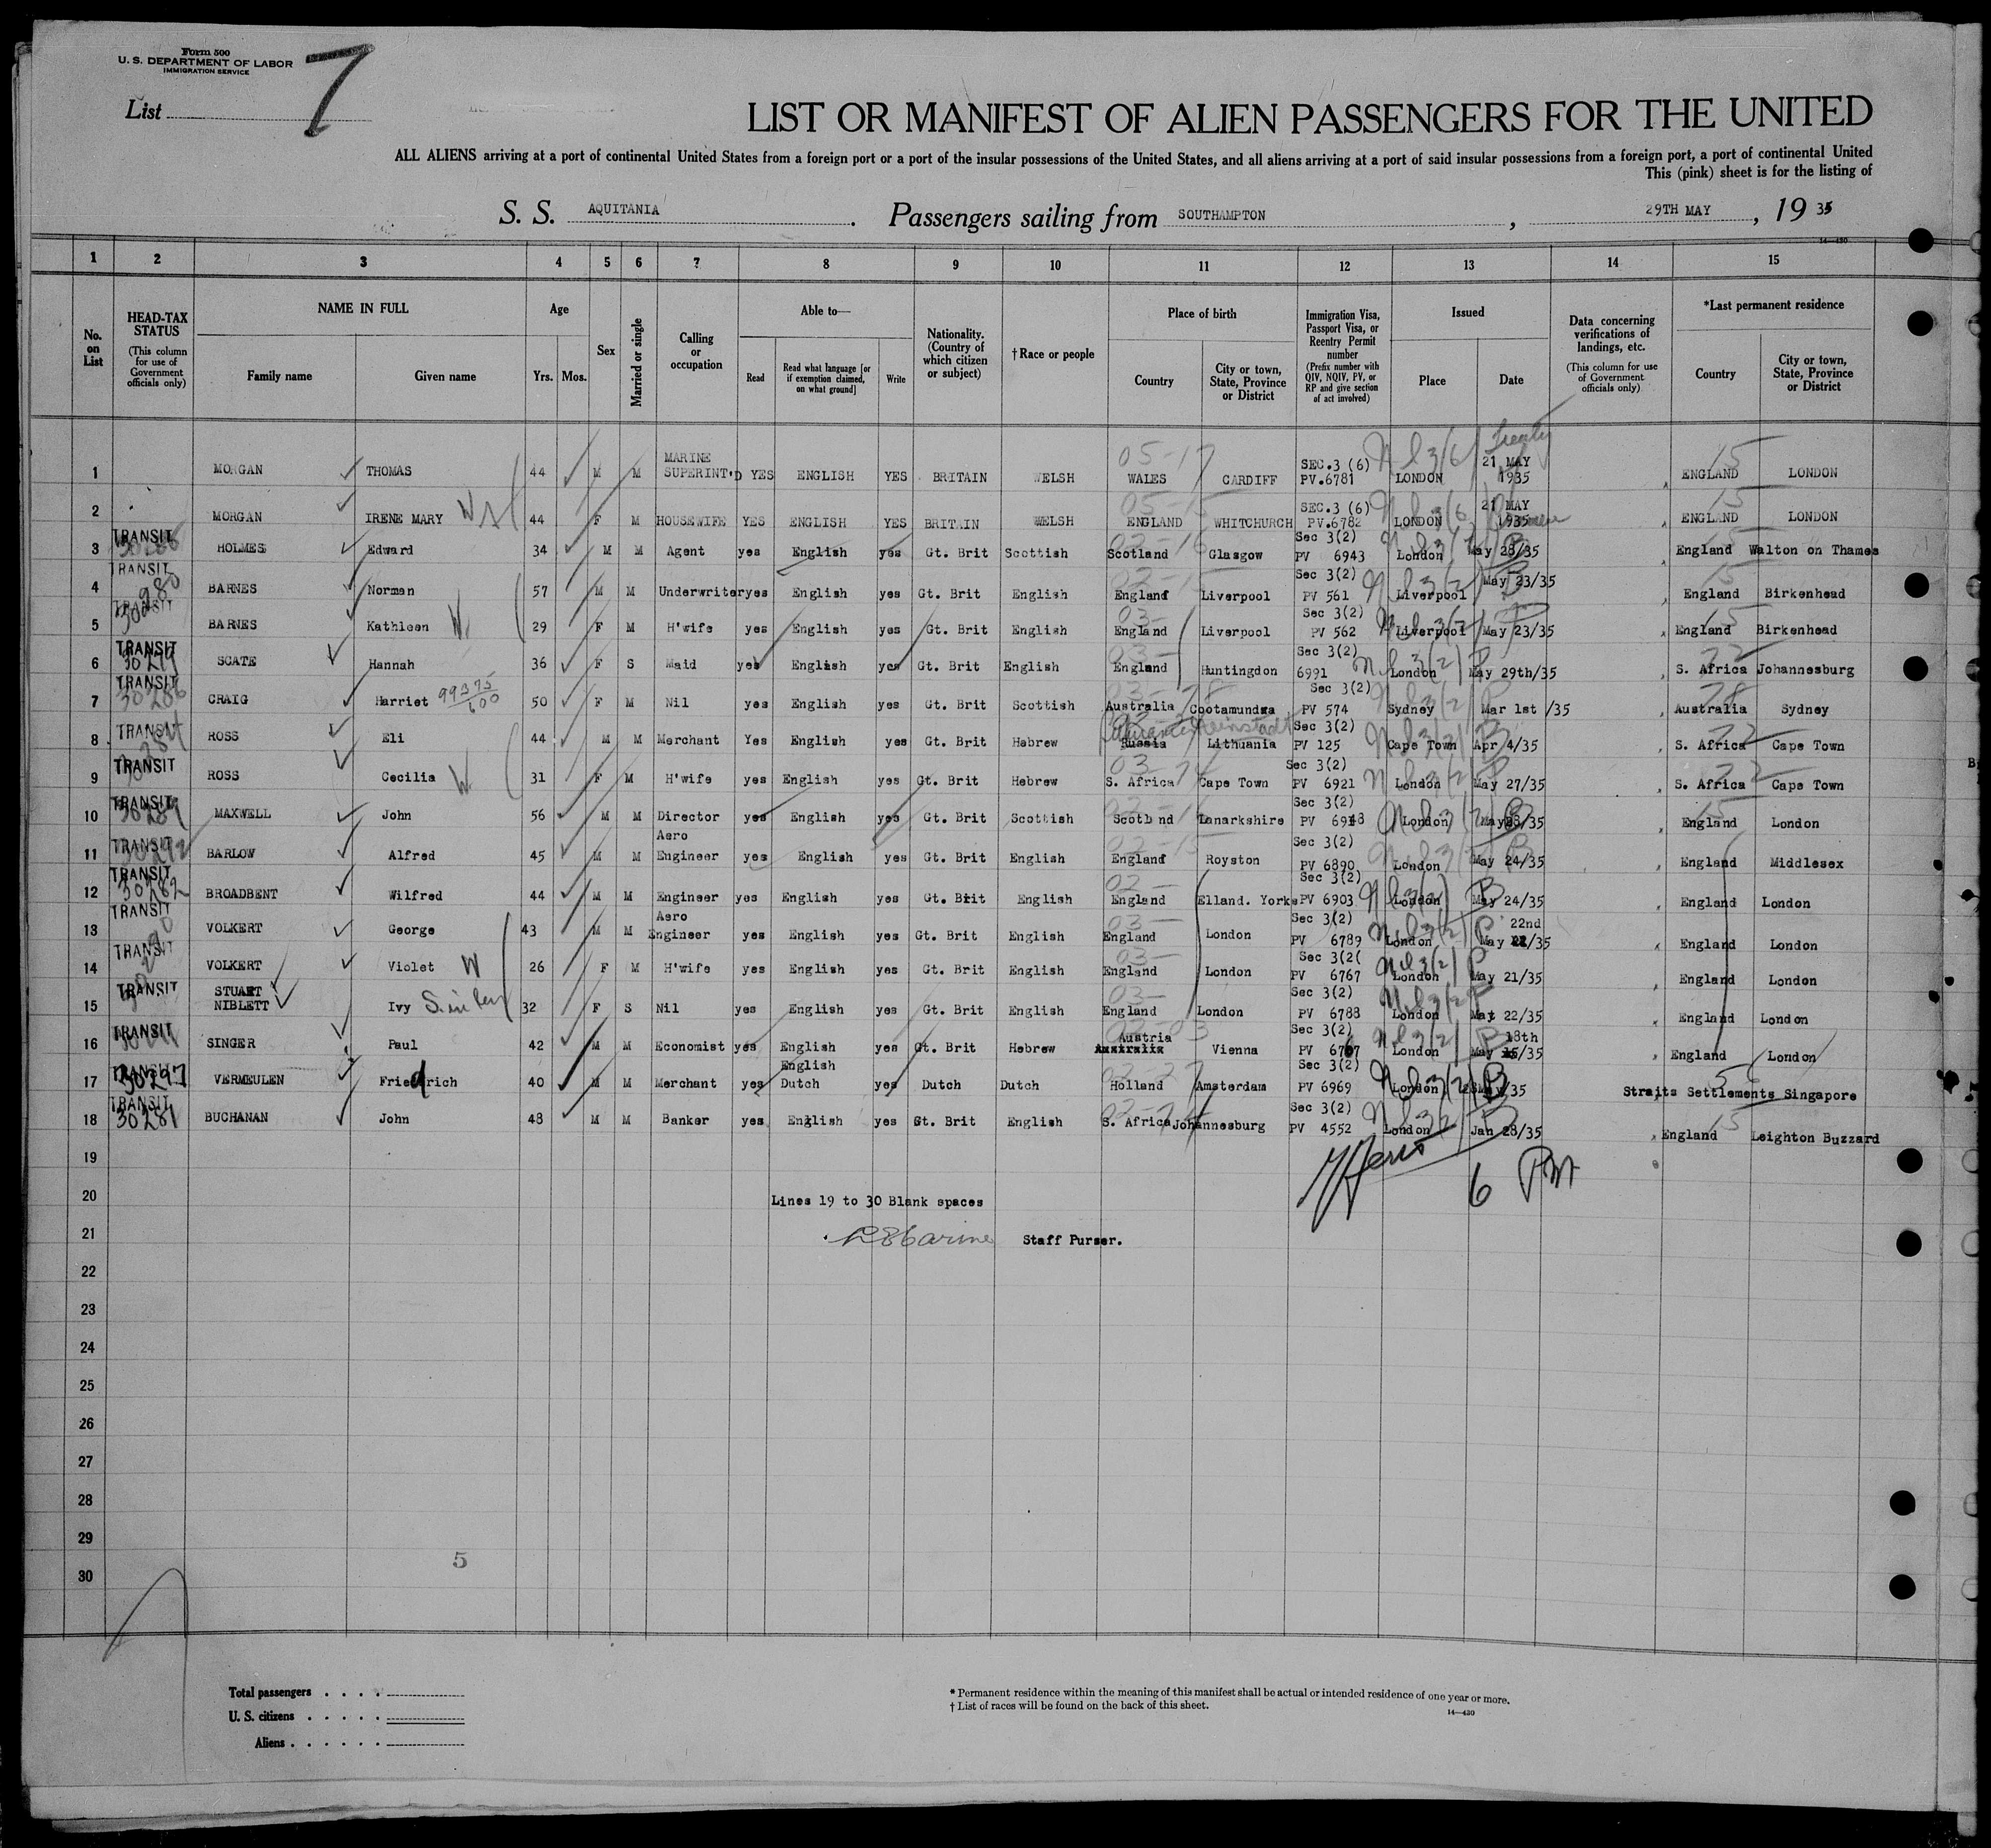 Form 500
U. S. DEPARTMENT OF LABOR
IMMIGRATION SERVICE
List 7
LIST OR MANIFEST OF ALIEN PASSENGERS FOR THE UNITED
ALL ALIENS arriving at a port of continental United States from a foreign port or a port of the insular possessions of the United States, and all aliens arriving at a port of said insular possessions from a foreign port, a port of continental United
This (pink) sheet is for the listing of
S. S. AQUITANIA. Passengers sailing from SOUTHAMPTON, 29TH MAY, 1935
14—430
1 2 3 4 5 6 7 8 9 10 11 12 13 14 15
No. on List
HEAD-TAX STATUS
(This column for use of Government officials only)
NAME IN FULL
Family name Given name
Age
Yrs. Mos.
Sex
Married or single
Calling or occupation
Able to—
Read
Read what language [or if exemption claimed, on what ground]
Write
Nationality. (Country of which citizen or subject)
†Race or people
Place of birth
Country
City or town, State, Province or District
Immigration Visa, Passport Visa, or Reentry Permit number
(Prefix number with QIV, NQIV, PV, or RP and give section of act involved)
Issued
Place Date
Data concerning verifications of landings, etc.
(This column for use of Government officials only)
*Last permanent residence
Country
City or town, State, Province or District
1 MORGAN THOMAS 44 M M MARINE SUPERINT'D YES ENGLISH YES BRITAIN WELSH 05-17 WALES CARDIFF SEC.3 (6) PV.6781 LONDON 21 MAY 1935 Treaty 15 ENGLAND LONDON
2 MORGAN IRENE MARY 44 F M HOUSEWIFE YES ENGLISH YES BRITAIN WELSH 05-15 ENGLAND WHITCHURCH SEC.3 (6) PV.6782 LONDON 21 MAY 1935 15 ENGLAND LONDON
3 TRANSIT 30286 HOLMES Edward 34 M M Agent yes English yes Gt. Brit Scottish 02-16 Scotland Glasgow Sec 3(2) PV 6943 London May 28/35 15 England Walton on Thames
4 TRANSIT BARNES Norman 57 M M Underwriter yes English yes Gt. Brit English 02-15 England Liverpool Sec 3(2) PV 561 Liverpool May 23/35 15 England Birkenhead
5 TRANSIT BARNES Kathleen W 29 F M H'wife yes English yes Gt. Brit English 03- England Liverpool Sec 3(2) PV 562 Liverpool May 23/35 15 England Birkenhead
6 TRANSIT SCATE Hannah 36 F S Maid yes English yes Gt. Brit English 03- England Huntingdon Sec 3(2) 6991 London May 29th/35 72 S. Africa Johannesburg
7 TRANSIT 30286 CRAIG Harriet 99375/600 50 F M Nil yes English yes Gt. Brit Scottish 03-78 Australia Cootamundra Sec 3(2) PV 574 Sydney Mar 1st /35 78 Australia Sydney
8 TRANSIT ROSS Eli 44 M M Merchant Yes English yes Gt. Brit Hebrew Russia Lithuania Sec 3(2) PV 125 Cape Town Apr 4/35 72 S. Africa Cape Town
9 TRANSIT ROSS Cecilia W 31 F M H'wife yes English yes Gt. Brit Hebrew S. Africa Cape Town Sec 3(2) PV 6921 London May 27/35 72 S. Africa Cape Town
10 TRANSIT 30284 MAXWELL John 56 M M Director yes English yes Gt. Brit Scottish 02-16 Scotl nd Lanarkshire Sec 3(2) PV 6943 London May28/35 15 England London
11 TRANSIT BARLOW Alfred 45 M M Aero Engineer yes English yes Gt. Brit English 02-15 England Royston Sec 3(2) PV 6890 London May 24/35 England Middlesex
12 TRANSIT 30282 BROADBENT Wilfred 44 M M Engineer yes English yes Gt. Brit English 02- England Elland. Yorks Sec 3(2) PV 6903 London May 24/35 England London
13 TRANSIT VOLKERT George 43 M M Aero Engineer yes English yes Gt. Brit English 03- England London Sec 3(2) PV 6789 London 22nd May /35 England London
14 TRANSIT VOLKERT Violet W 26 F M H'wife yes English yes Gt. Brit English 03- England London Sec 3(2( PV 6767 London May 21/35 England London
15 TRANSIT STUART NIBLETT Ivy 32 F S Nil yes English yes Gt. Brit English 03- England London Sec 3(2) PV 6788 London May 22/35 England London
16 TRANSIT SINGER Paul 42 M M Economist yes English yes Gt. Brit Hebrew 02-03 Austria Vienna Sec 3(2) PV 6767 London 18th May /35 England London
17 TRANSIT 30297 VERMEULEN Friedrich 40 M M Merchant yes English Dutch yes Dutch Dutch Holland Amsterdam Sec 3(2) PV 6969 London 28May/35 Straits Settlements Singapore
18 TRANSIT 30281 BUCHANAN John 48 M M Banker yes English yes Gt. Brit English S. Africa Johannesburg Sec 3(2) PV 4552 London Jan 28/35 15 England Leighton Buzzard
19
6 PM
20 Lines 19 to 30 Blank spaces
21 Staff Purser.
22
23
24
25
26
27
28
29
5
30
Total passengers . . . .
U. S. citizens . . . . .
Aliens . . . . . .
* Permanent residence within the meaning of this manifest shall be actual or intended residence of one year or more.
† List of races will be found on the back of this sheet.
14—430